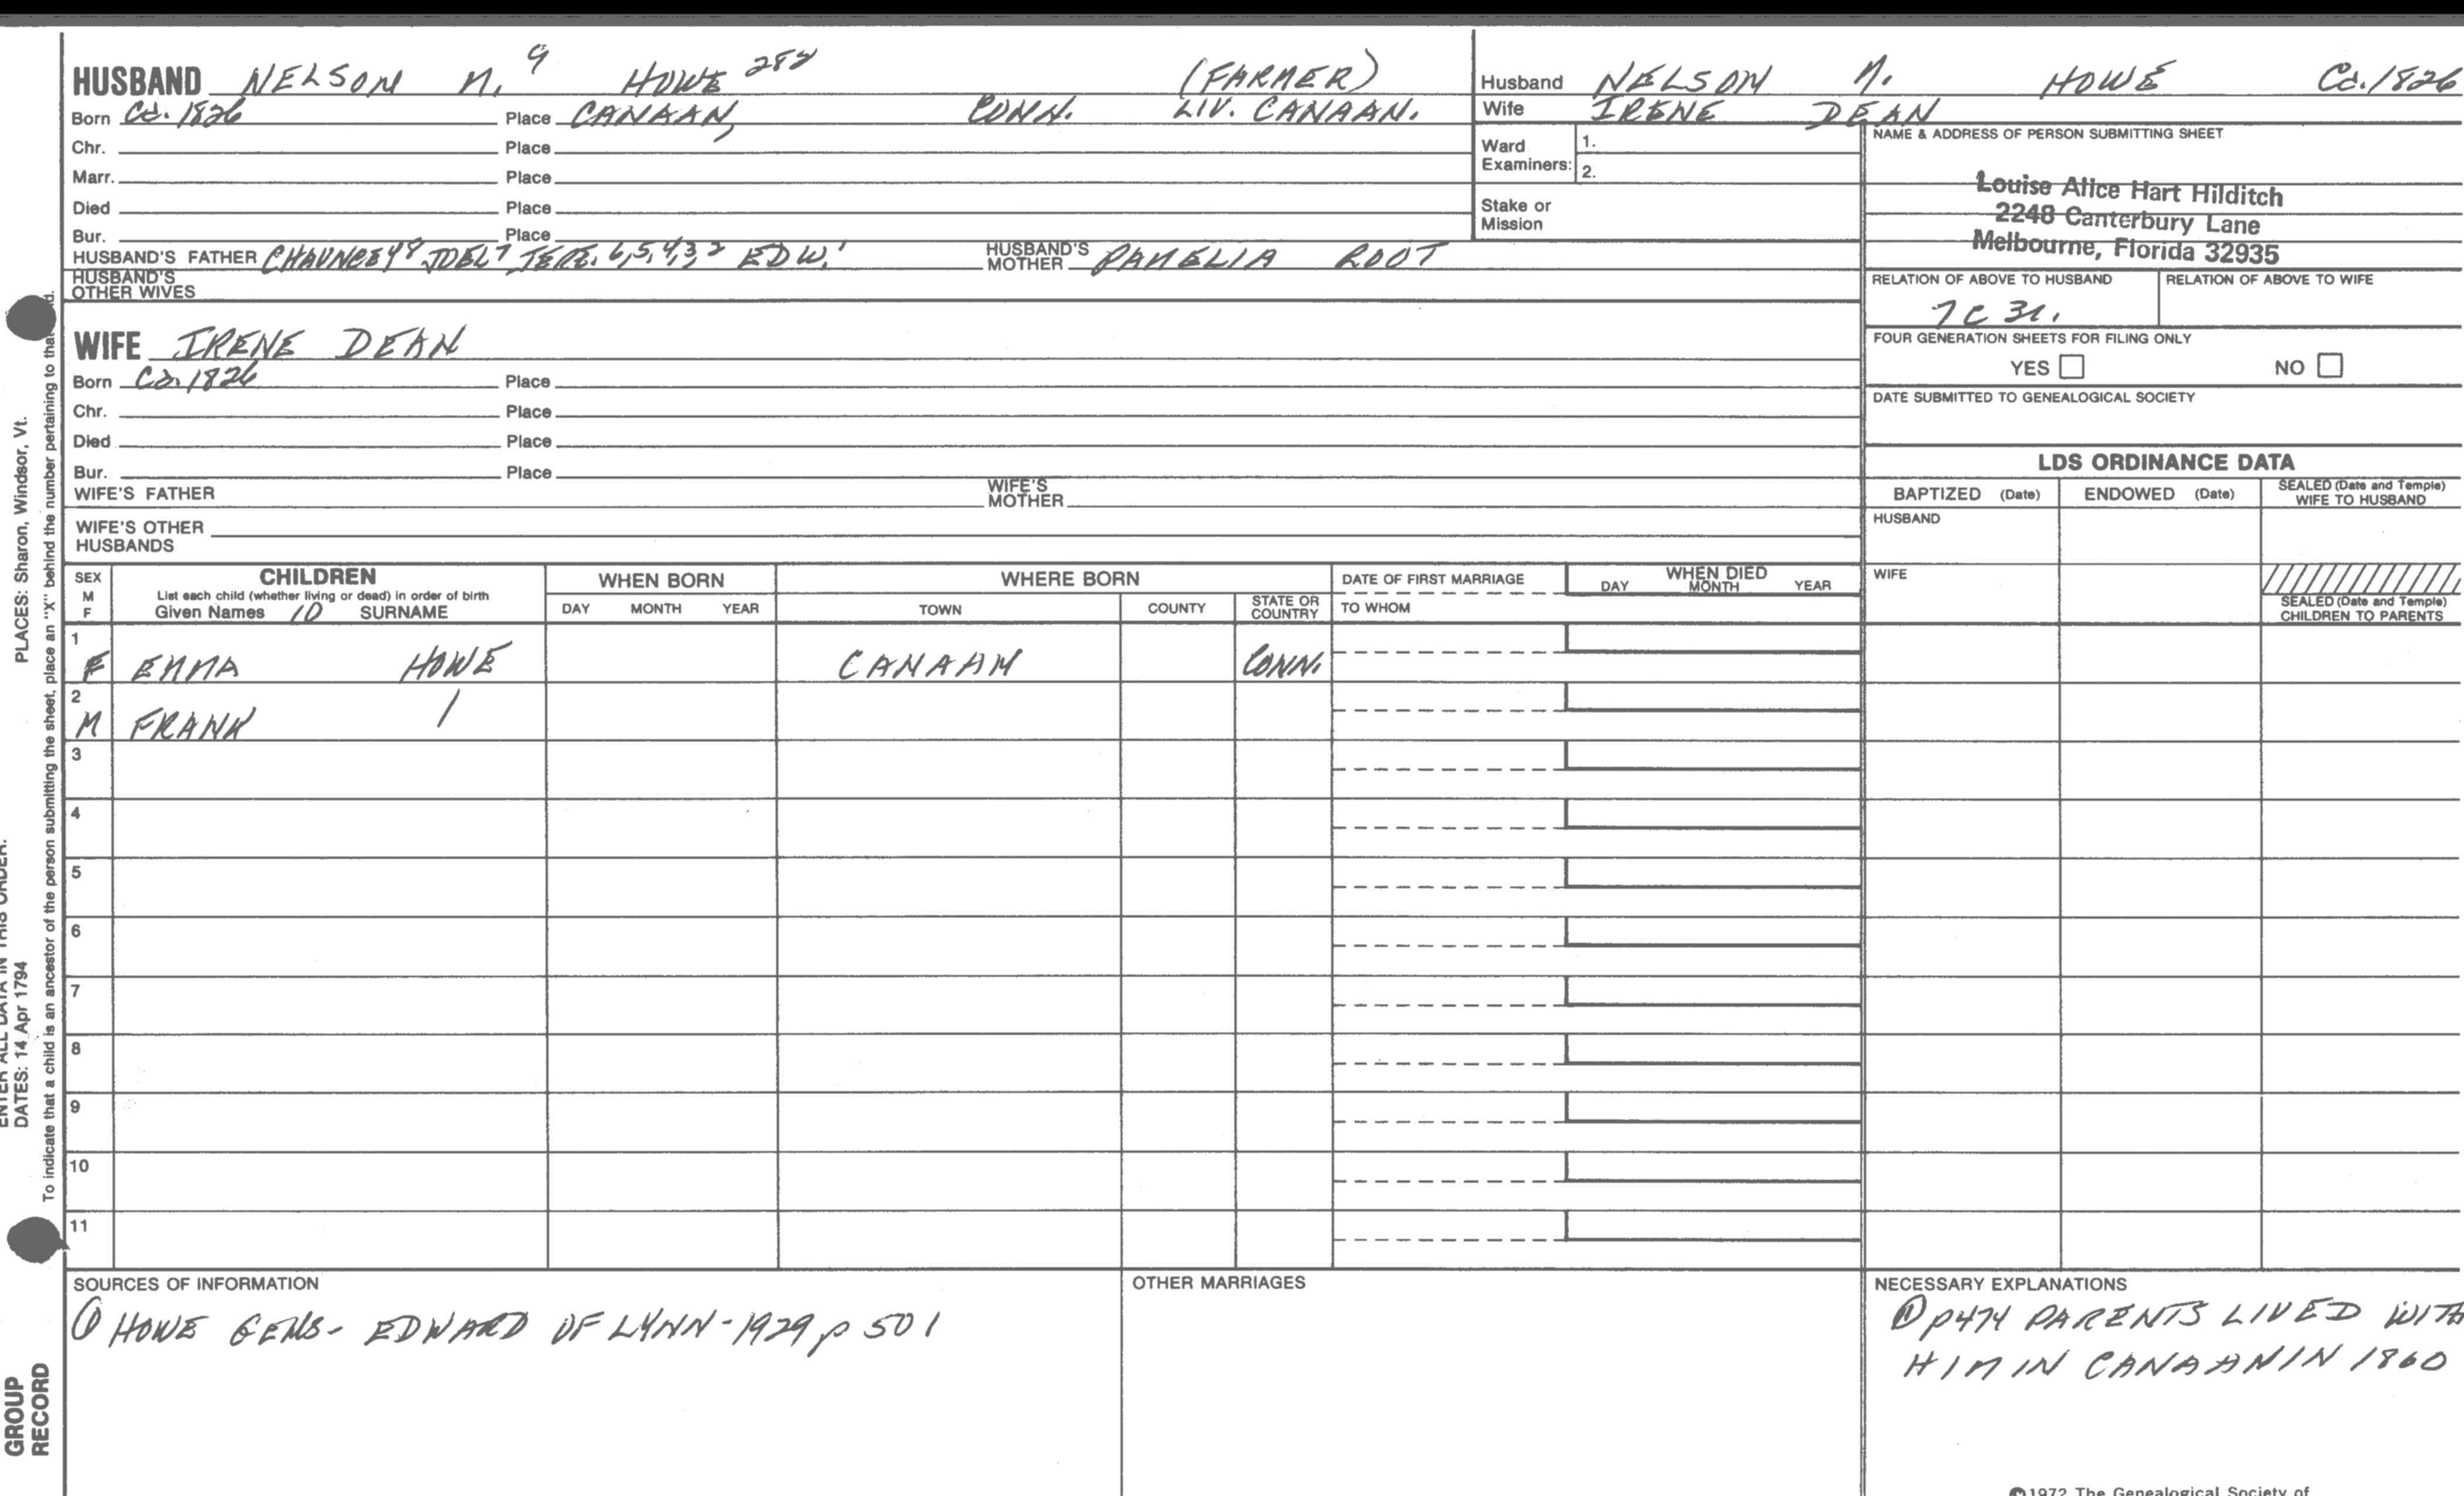 HUSBAND NELSON M. 9 HOWE 282 (FARMER)
Born Ca. 1826 Place CANAAN, CONN. LIV. CANAAN.
Chr. Place
Marr. Place
Died Place
Bur. Place
HUSBAND'S FATHER CHAUNCEY 8 JOEL 7 JERE. 6,5,4,3 2 EDW. 1 HUSBAND'S MOTHER PAMELIA ROOT
HUSBAND'S OTHER WIVES
WIFE IRENE DEAN
Born Ca. 1826 Place
Chr. Place
Died Place
Bur. Place
WIFE'S FATHER WIFE'S MOTHER
WIFE'S OTHER HUSBANDS
Husband NELSON M. HOWE Ca. 1826
Wife IRENE DEAN
Ward Examiners: 1.
2.
Stake or Mission
NAME & ADDRESS OF PERSON SUBMITTING SHEET
Louise Alice Hart Hilditch
2248 Canterbury Lane
Melbourne, Florida 32935
RELATION OF ABOVE TO HUSBAND RELATION OF ABOVE TO WIFE
7C
FOUR GENERATION SHEETS FOR FILING ONLY
YES NO
DATE SUBMITTED TO GENEALOGICAL SOCIETY
LDS ORDINANCE DATA
BAPTIZED (Date) ENDOWED (Date) SEALED (Date and Temple) WIFE TO HUSBAND
HUSBAND
WIFE
SEALED (Date and Temple)
CHILDREN TO PARENTS
SEX M F
CHILDREN
List each child (whether living or dead) in order of birth
Given Names 10 SURNAME
WHEN BORN
DAY MONTH YEAR
WHERE BORN
TOWN COUNTY STATE OR COUNTRY
DATE OF FIRST MARRIAGE
TO WHOM
WHEN DIED
DAY MONTH YEAR
1
F EMMA HOWE CANAAN CONN.
2
M FRANK /
3
4
5
6
7
8
9
10
11
SOURCES OF INFORMATION
① HOWE GENS- EDWARD OF LYNN-1929 p 501
OTHER MARRIAGES
NECESSARY EXPLANATIONS
① P474 PARENTS LIVED WITH
HIM IN CANAAN IN 1860
©1972 The Genealogical Society of
PLACES: Sharon, Windsor, Vt.
ENTER ALL DATA IN THIS ORDER:
DATES: 14 Apr 1794
To indicate that a child is an ancestor of the person submitting the sheet, place an "X" behind the number pertaining to that
GROUP
RECORD